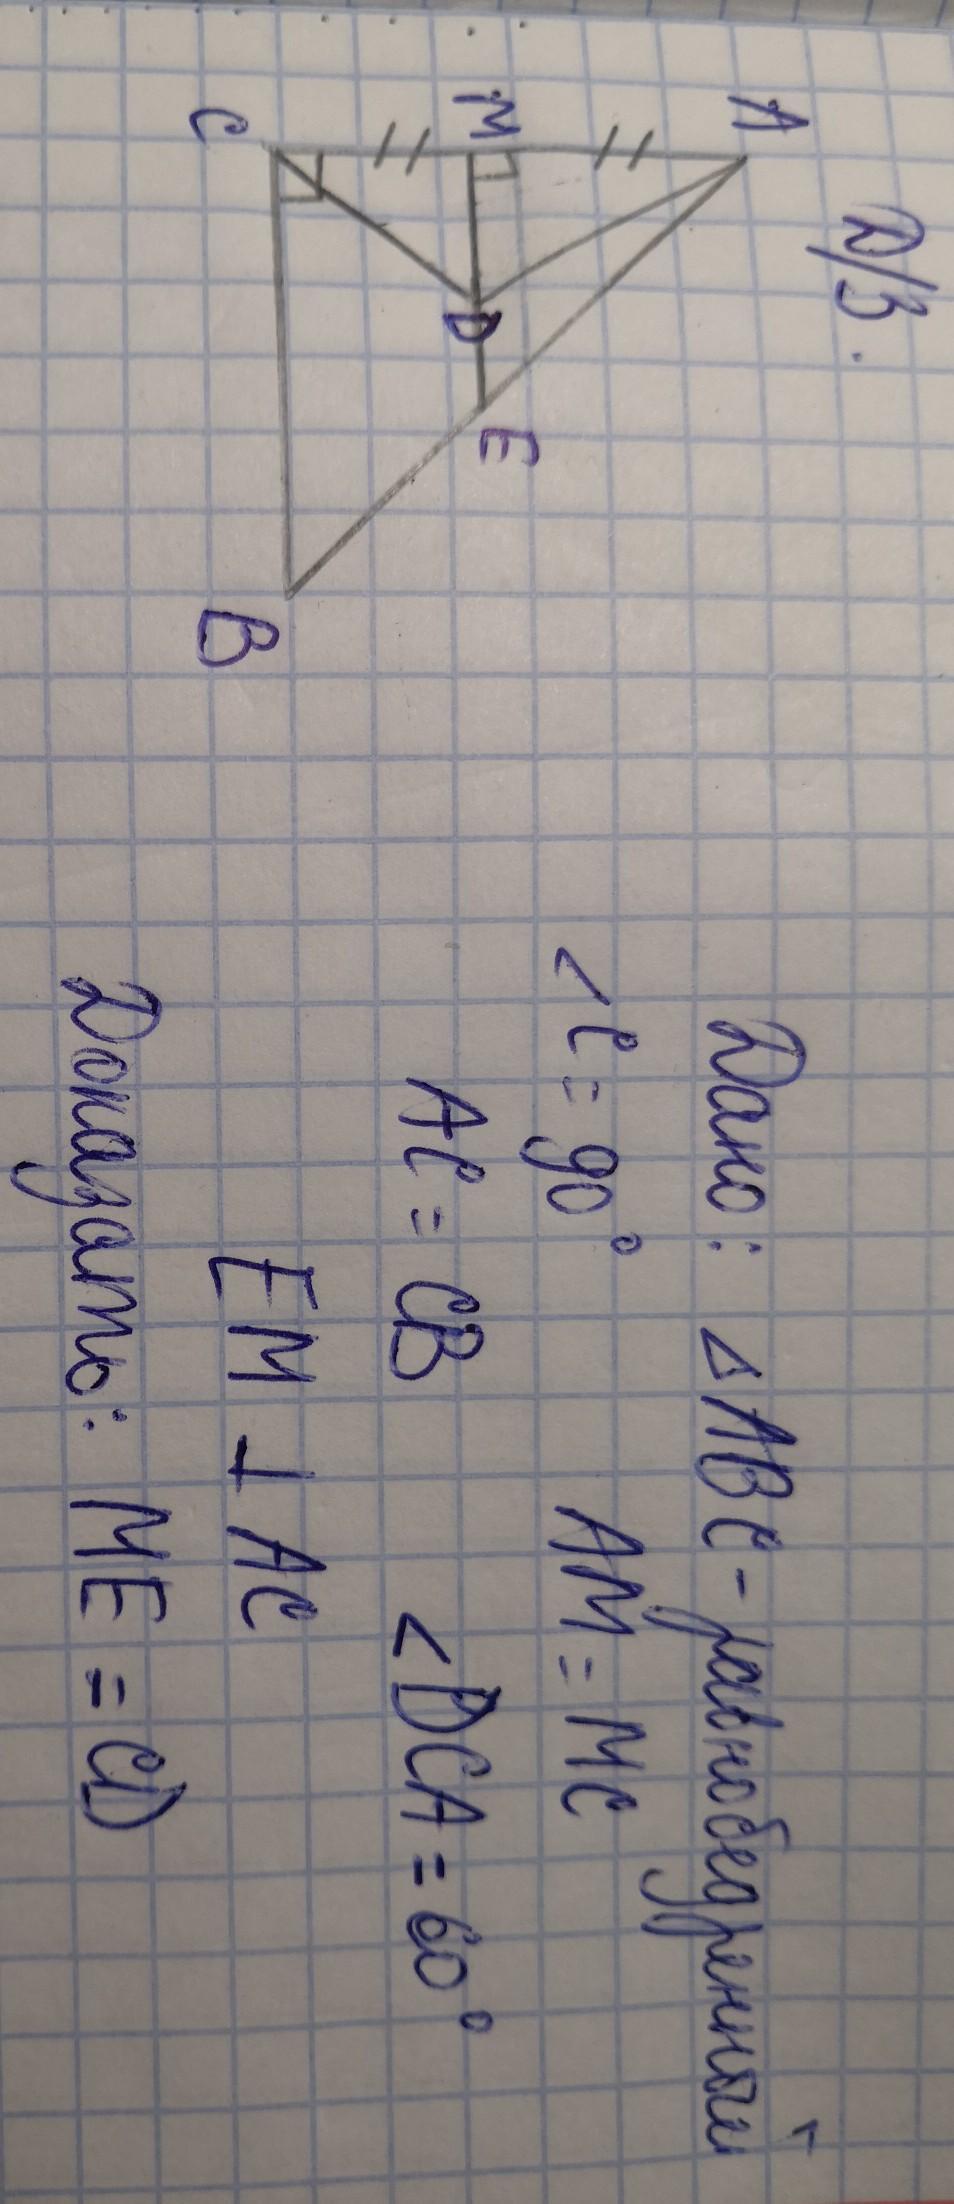 Д/З.
A
M
C
D
E
B
Дано: △ABC - равнобедренный
<C = 90° AM = MC
AC = CB <DCA = 60°
EM ⊥ AC
Доказать: ME = CD